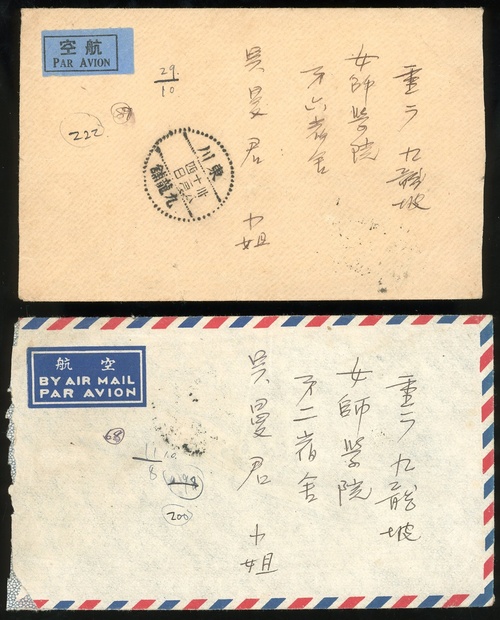 航空
PAR AVION
29
10
68
222
東川
九龍鋪
重广九龍坡
女師學院
第六宿舍
吳曼君 小姐
航空
BY AIR MAIL
PAR AVION
68
11
8
198
200
重广九龍坡
女師學院
第二宿舍
吳曼君 小姐